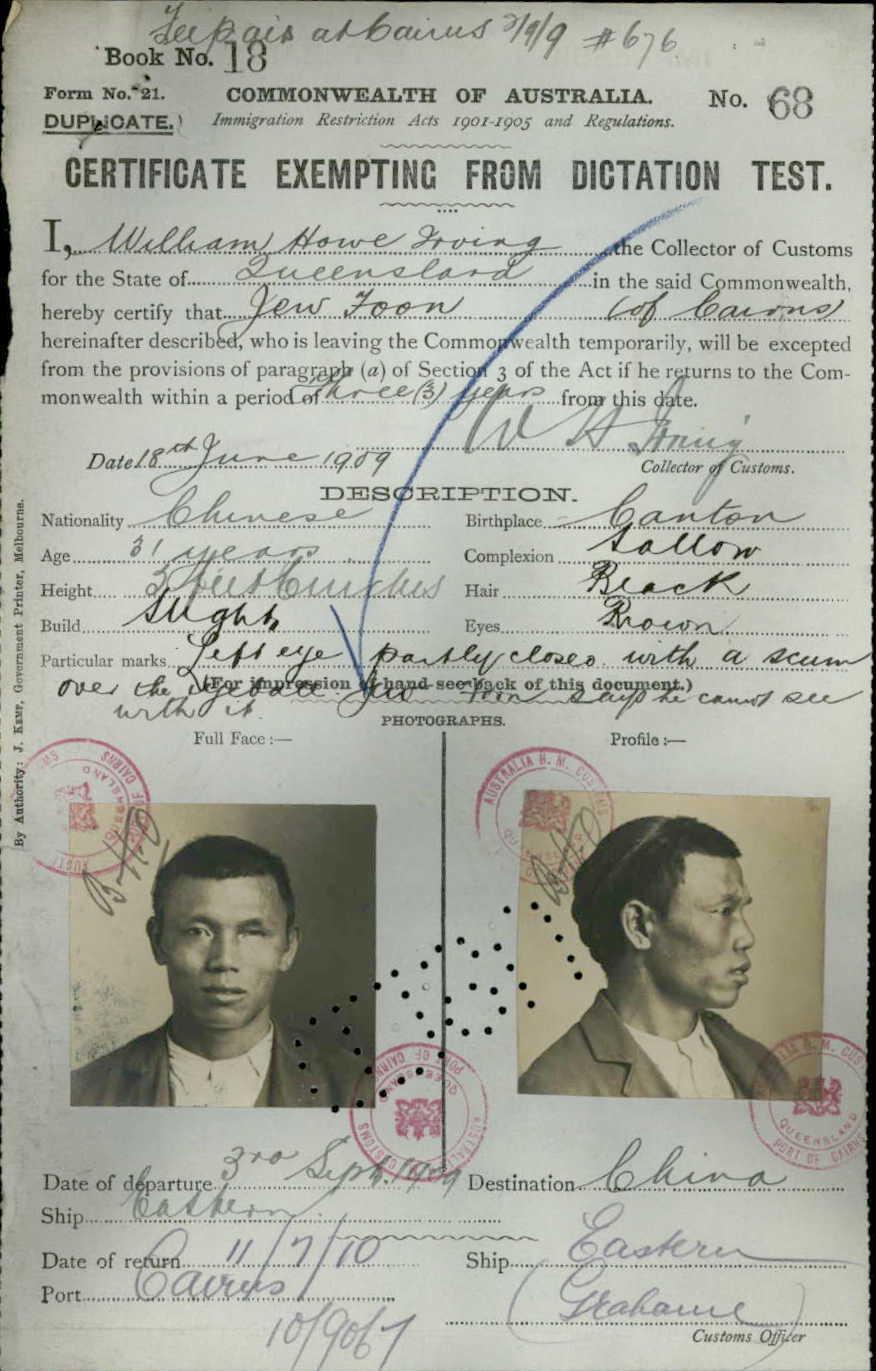 at Cairns 3/9/9 #676
Book No. 18
Form No. 21. COMMONWEALTH OF AUSTRALIA. No. 68
DUPLICATE. Immigration Restriction Acts 1901-1905 and Regulations.
CERTIFICATE EXEMPTING FROM DICTATION TEST.
I, William Howe Irving the Collector of Customs
for the State of Queensland in the said Commonwealth,
hereby certify that Jew Foon (of Cairns)
hereinafter described, who is leaving the Commonwealth temporarily, will be excepted
from the provisions of paragraph (a) of Section 3 of the Act if he returns to the Com-
monwealth within a period of three (3) years from this date.
W H Irving
Date 18th June 1909 Collector of Customs.
DESCRIPTION.
Nationality Chinese Birthplace Canton
Age 31 years Complexion Sallow
Height 5 feet 6 inches Hair Black
Build Slight Eyes Brown
Particular marks Left eye partly closed with a scum
over the eyeball Jew Foon says he cannot see
(For impression of hand see back of this document.)
with it.
PHOTOGRAPHS.
Full Face :— Profile :—
By Authority: J. KEMP, Government Printer, Melbourne.
AUSTRALIA H. M. CUSTOMS
QUEENSLAND
PORT OF CAIRNS
Date of departure 3rd Sept. 1909 Destination China
Ship Eastern
Date of return 11/7/10 Ship Eastern
Port Cairns
Grahame
10/9067
Customs Officer